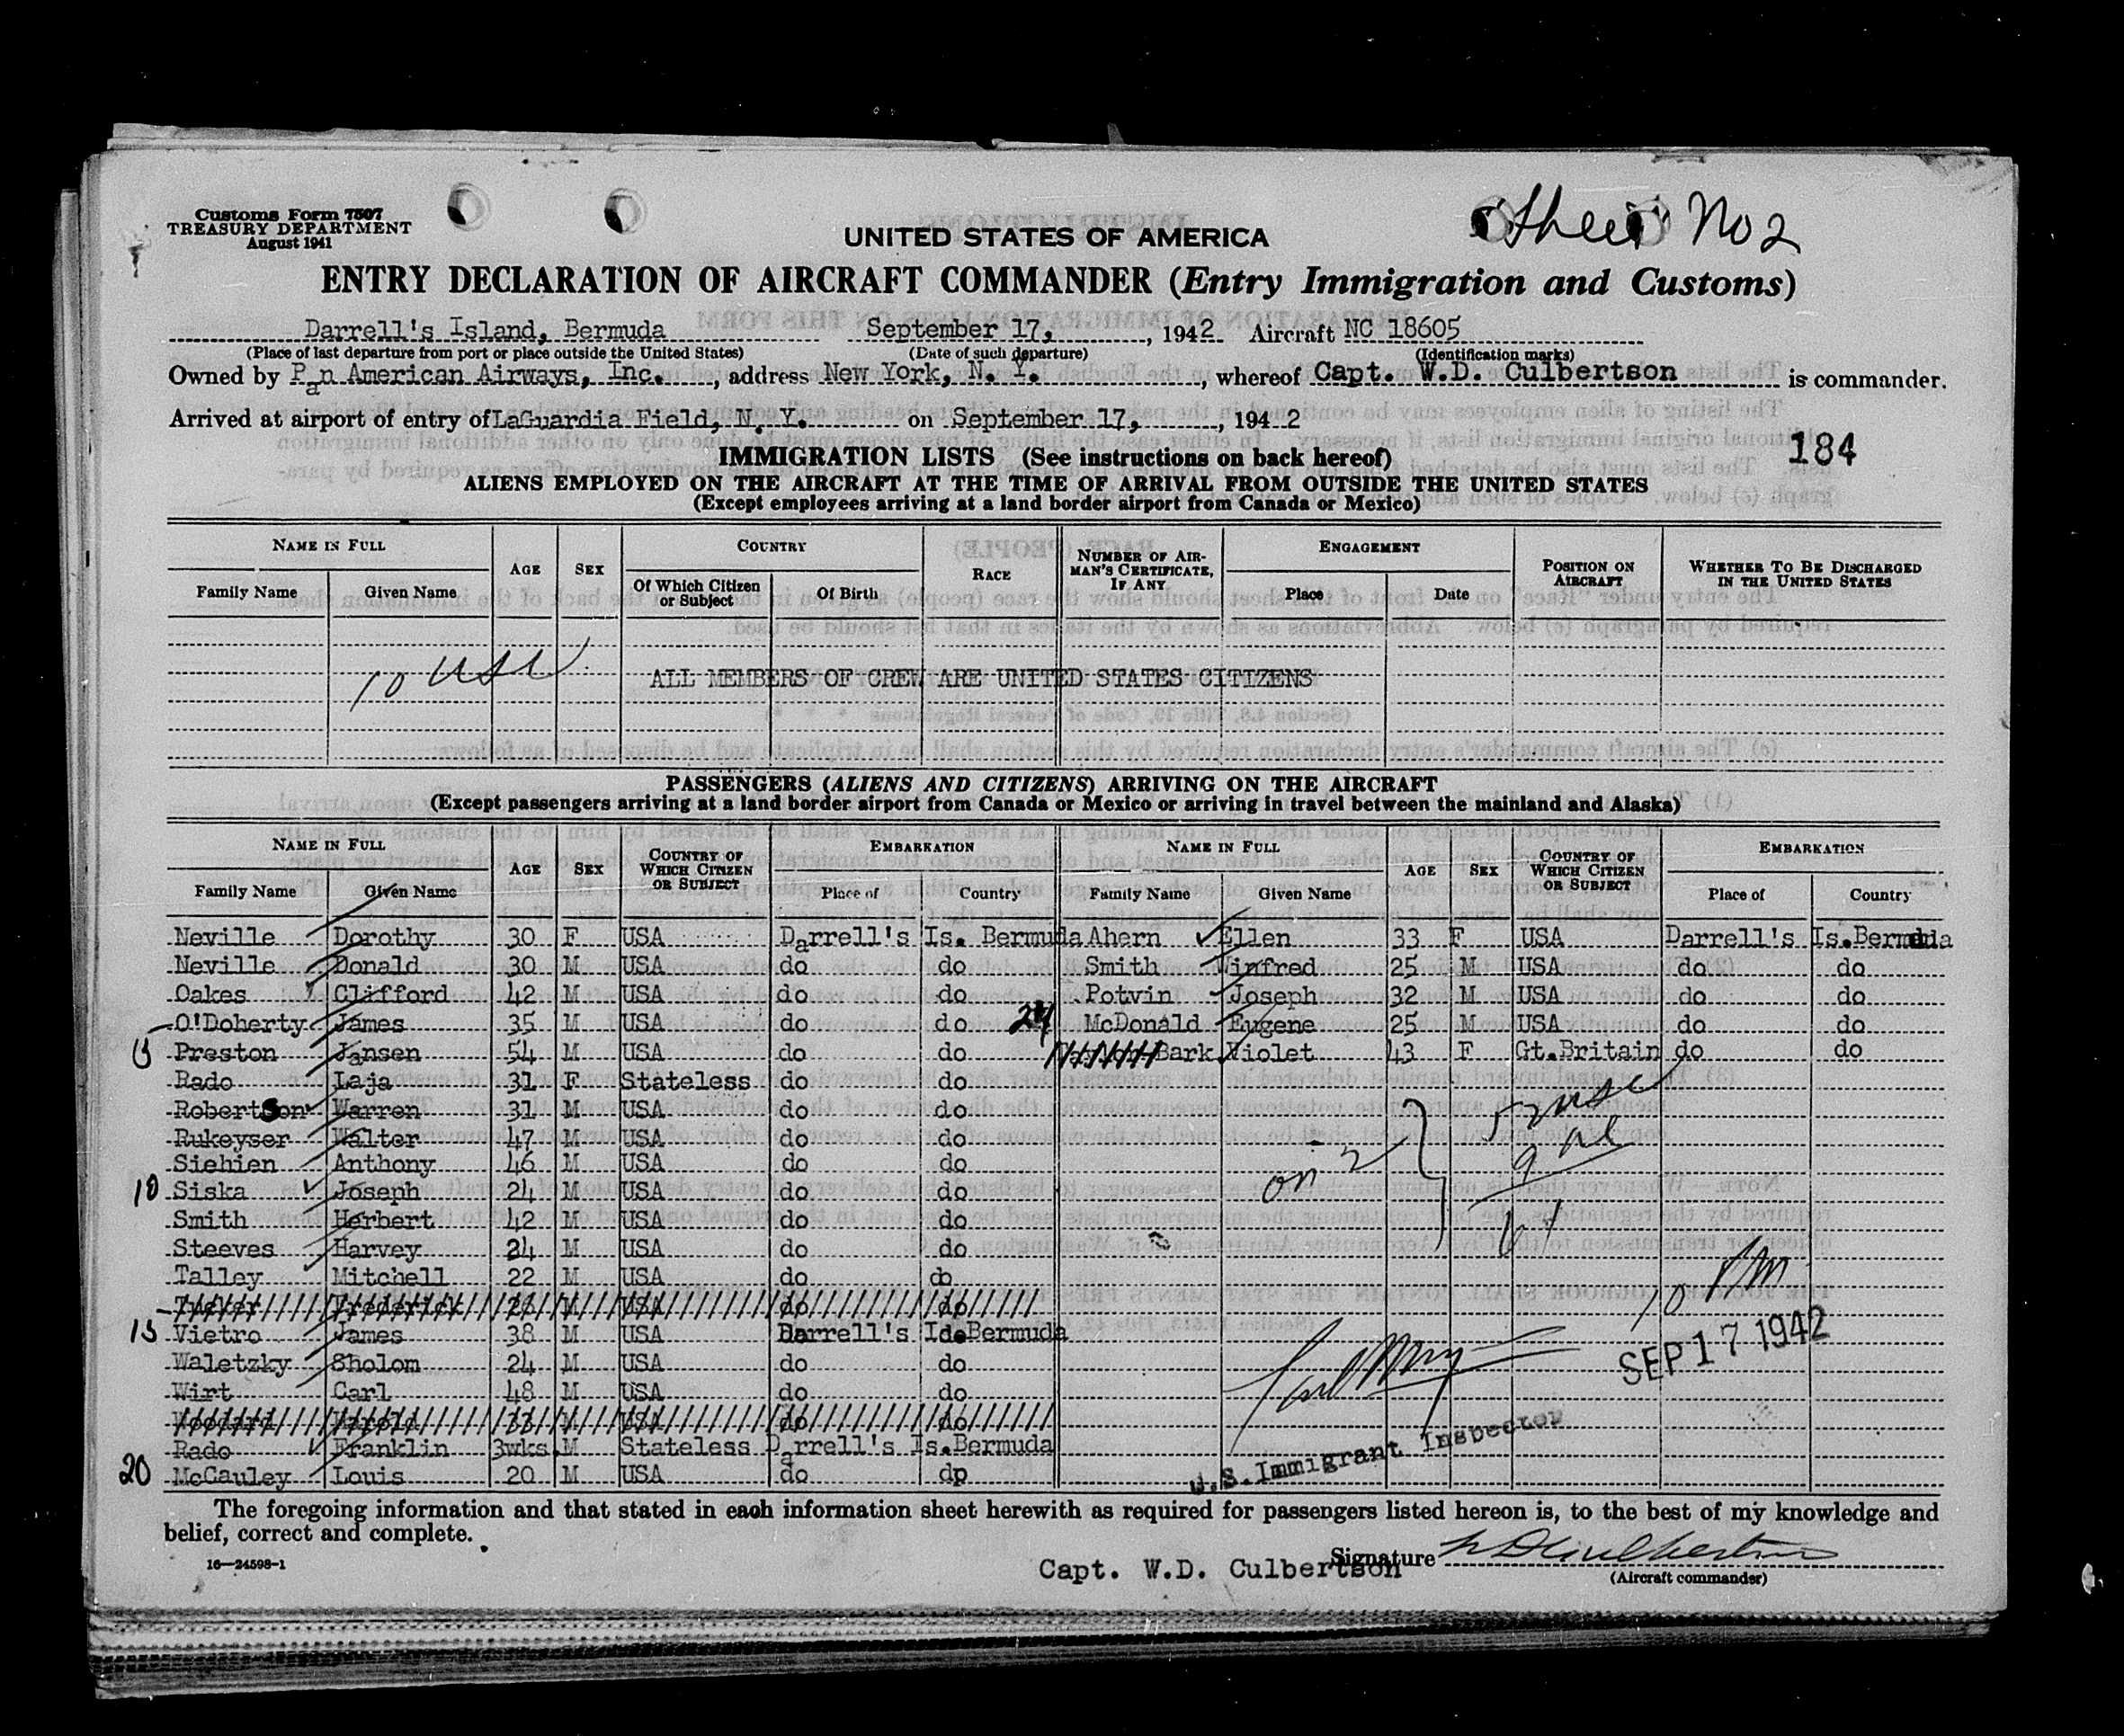 Customs Form 7507
TREASURY DEPARTMENT
August 1941
Sheet No 2
UNITED STATES OF AMERICA
ENTRY DECLARATION OF AIRCRAFT COMMANDER (Entry Immigration and Customs)
Darrell's Island, Bermuda September 17, , 1942 Aircraft NC 18605
(Place of last departure from port or place outside the United States) (Date of such departure) (Identification marks)
Owned by Pan American Airways, Inc. , address New York, N. Y. , whereof Capt. W.D. Culbertson is commander.
Arrived at airport of entry of LaGuardia Field, N. Y. on September 17, , 1942
184
IMMIGRATION LISTS (See instructions on back hereof)
ALIENS EMPLOYED ON THE AIRCRAFT AT THE TIME OF ARRIVAL FROM OUTSIDE THE UNITED STATES
(Except employees arriving at a land border airport from Canada or Mexico)
NAME IN FULL AGE SEX COUNTRY RACE NUMBER OF AIRMAN'S CERTIFICATE, IF ANY ENGAGEMENT POSITION ON AIRCRAFT WHETHER TO BE DISCHARGED IN THE UNITED STATES
Family Name Given Name Of Which Citizen or Subject Of Birth Place Date
10 USC ALL MEMBERS OF CREW ARE UNITED STATES CITIZENS
PASSENGERS (ALIENS AND CITIZENS) ARRIVING ON THE AIRCRAFT
(Except passengers arriving at a land border airport from Canada or Mexico or arriving in travel between the mainland and Alaska)
NAME IN FULL AGE SEX COUNTRY OF WHICH CITIZEN OR SUBJECT EMBARKATION NAME IN FULL AGE SEX COUNTRY OF WHICH CITIZEN OR SUBJECT EMBARKATION
Family Name Given Name Place of Country Family Name Given Name Place of Country
Neville Dorothy 30 F USA Darrell's Is. Bermuda Ahern Ellen 33 F USA Darrell's Is.Bermuda
Neville Donald 30 M USA do do Smith Winfred 25 M USA do do
Oakes Clifford 42 M USA do do Potvin Joseph 32 M USA do do
O'Doherty James 35 M USA do do 24 McDonald Eugene 25 M USA do do
5 Preston Jansen 54 M USA do do Bark Violet 43 F Gt.Britain do do
Rado Laja 31 F Stateless do do
Robertson Warren 31 M USA do do
Rukeyser Walter 47 M USA do do
Siehien Anthony 46 M USA do do
on 2
10 Siska Joseph 24 M USA do do
Smith Herbert 42 M USA do do
Steeves Harvey 24 M USA do do
Talley Mitchell 22 M USA do do
Tucker Frederick 26 M USA do do
10 PM
15 Vietro James 38 M USA Darrell's Bermuda
SEP 17 1942
Waletzky Sholom 24 M USA do do
Wirt Carl 48 M USA do do
Woodard Harold 33 M USA do do
Rado Franklin 3wks. M Stateless Darrell's Is.Bermuda
U.S. Immigrant Inspector
20 McCauley Louis 20 M USA do dp
The foregoing information and that stated in each information sheet herewith as required for passengers listed hereon is, to the best of my knowledge and
belief, correct and complete.
16—24598-1
Capt. W.D. Culbertson Signature WD Culbertson
(Aircraft commander)